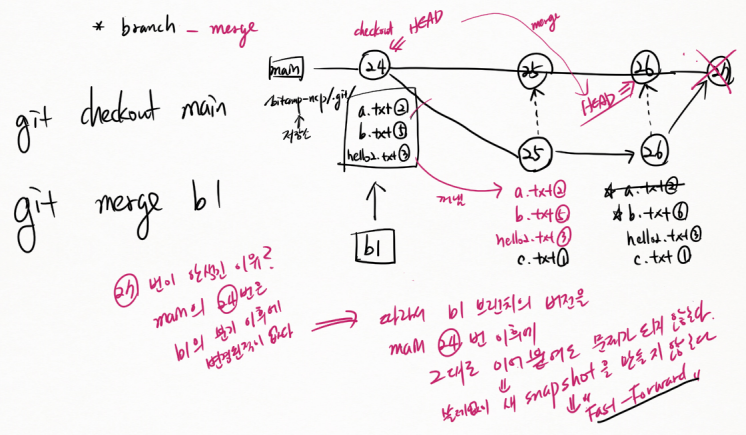 * branch - merge
git checkout main
git merge b1
checkout HEAD
merge
main
24
25
26
27
/bitcamp-ncp/.git/
저장소
a.txt②
b.txt⑤
hello2.txt③
b1
HEAD
25
26
꺼냄
a.txt②
b.txt⑤
hello2.txt③
c.txt①
* a.txt②
* b.txt⑥
hello2.txt③
c.txt①
27 번이 안생긴 이유?
main의 24번은
b1의 분기 이후에
변경된적이 없다
따라서 b1 브랜치의 버전을
main 24번 이후에
그대로 이어 붙여도 문제가 되지 않는다.
불필요하게 새 snapshot를 만들지 않는다
"Fast-Forward"